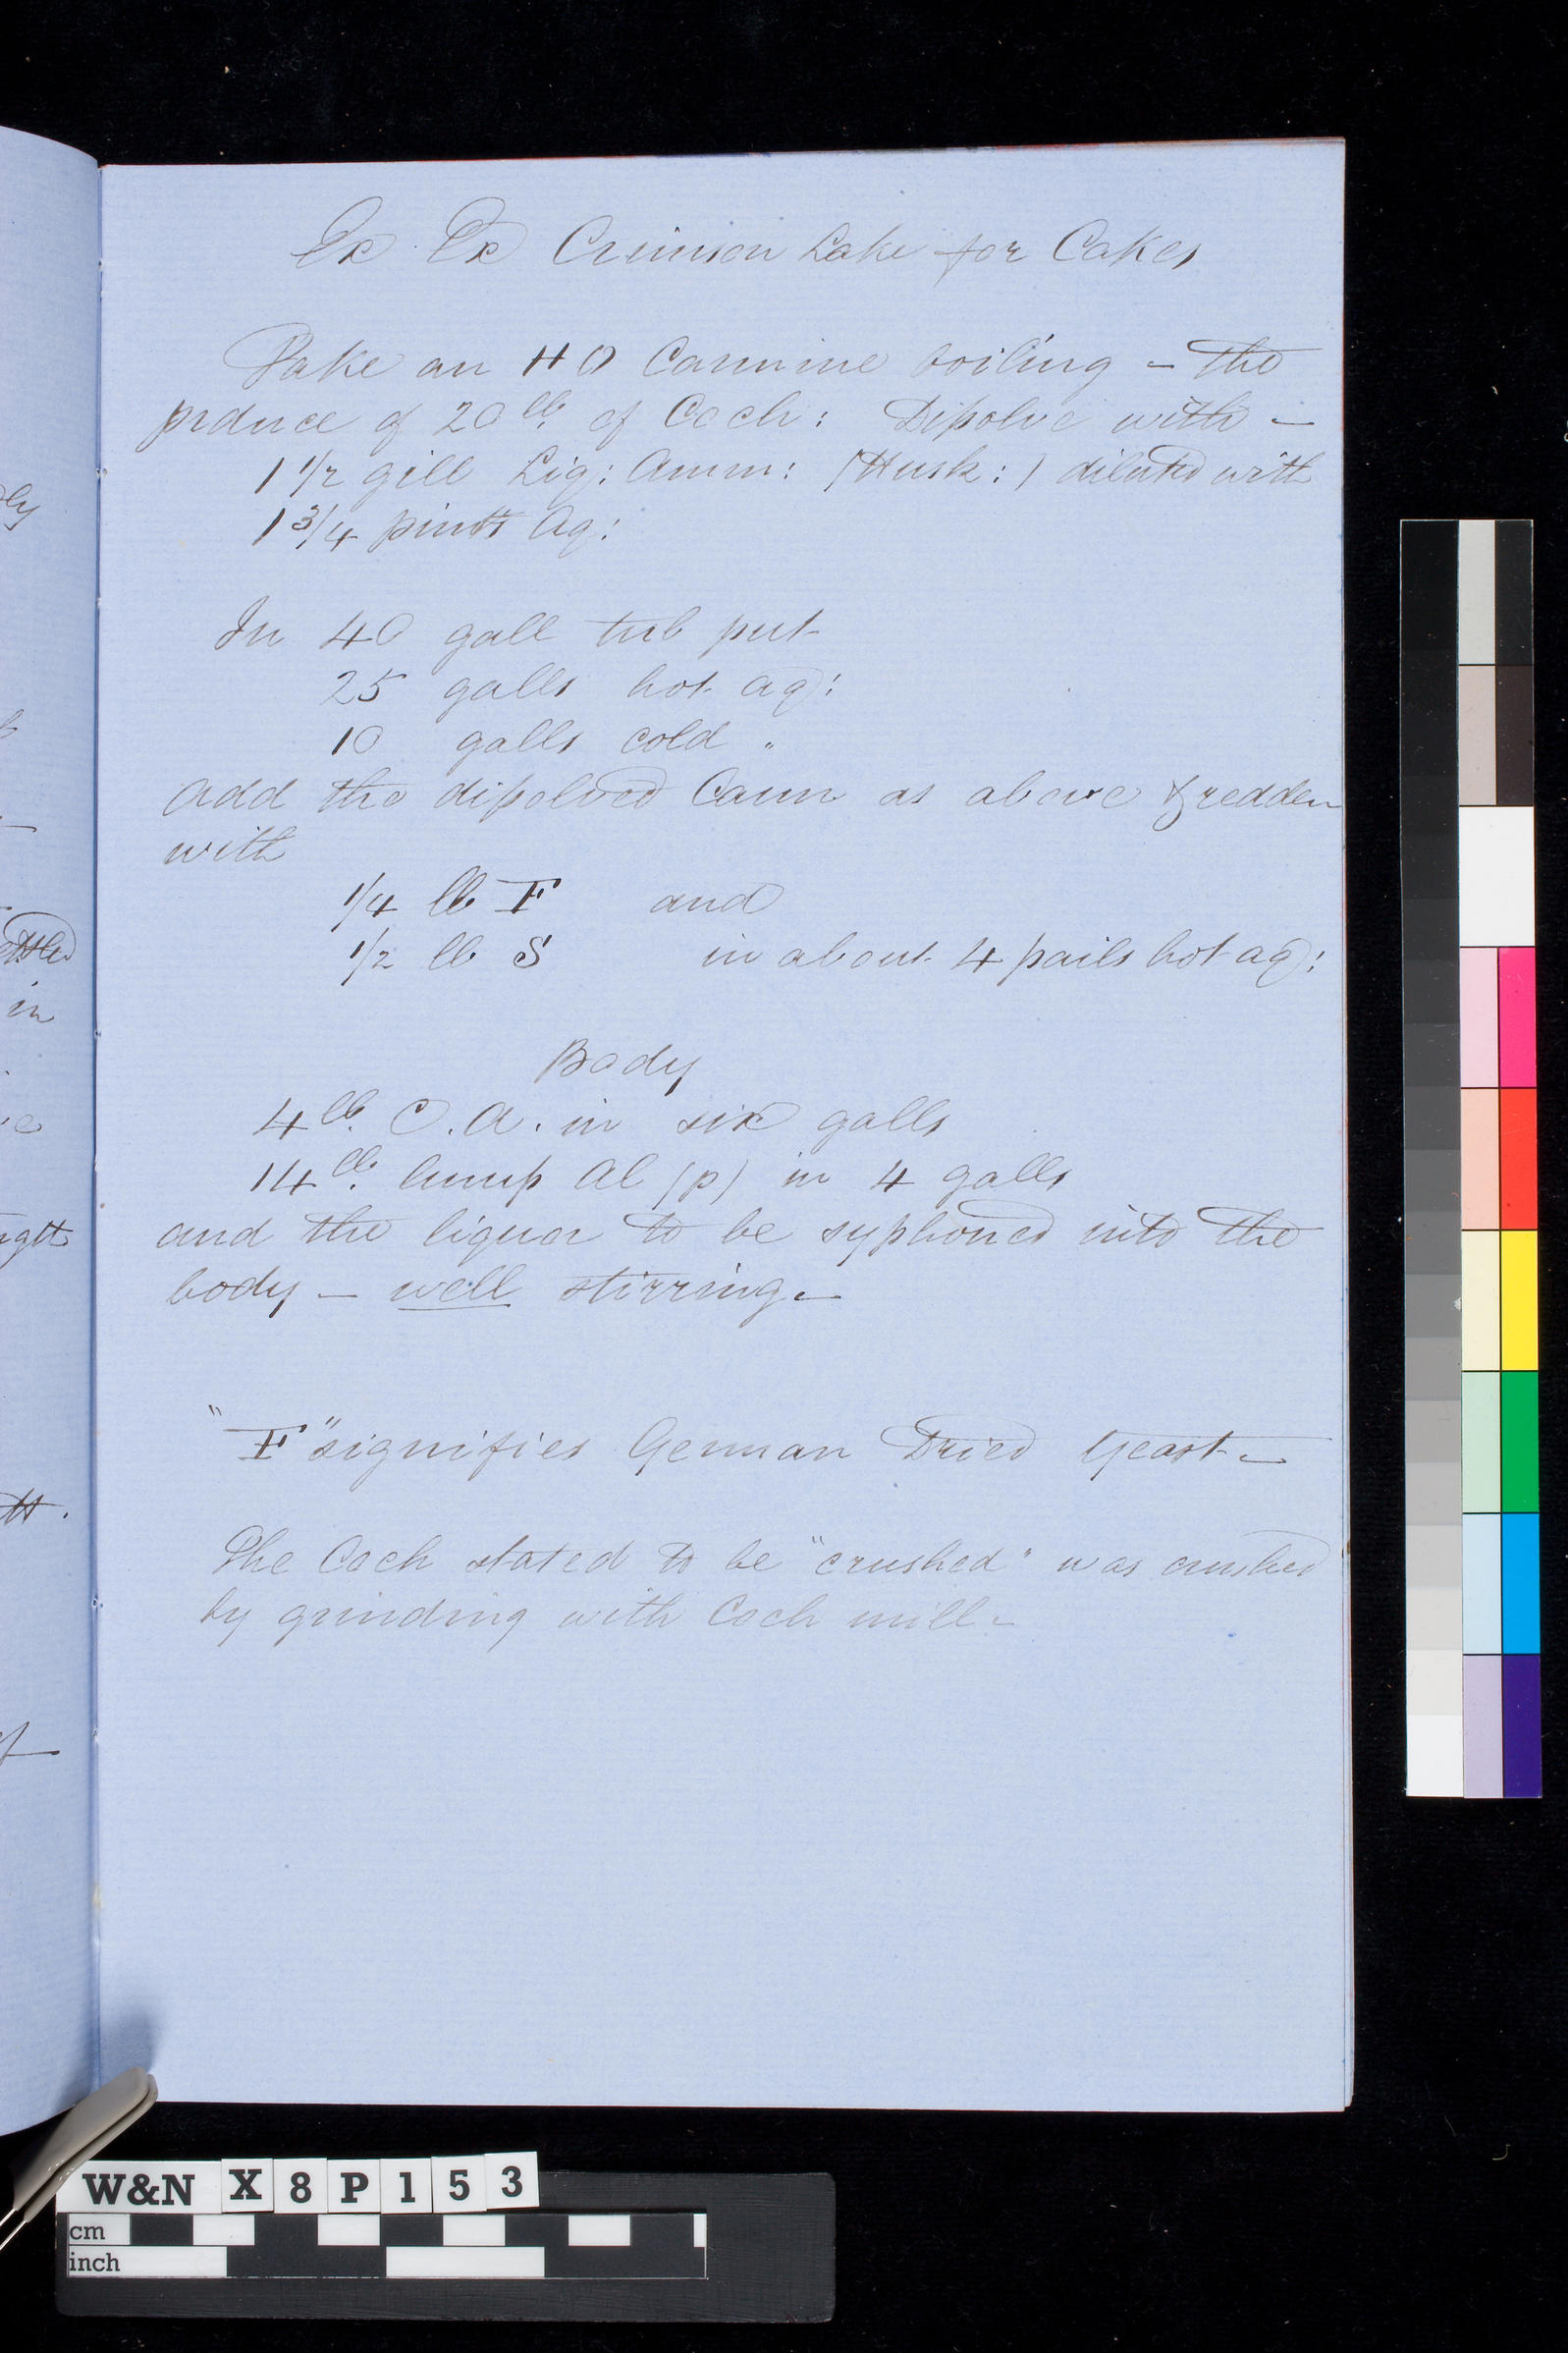 Ex Ex Crimson Lake for Cakes
Take an HO Carmine boiling – the
prduce of 20 lb. of Coch: Dissolve with –
1 1/2 gill Liq: Amm: (Husk:) diluted with
1 3/4 pints Aq:
In 40 gall tub put
25 galls hot aq:
10 galls cold "
add the dissolved Carm as above & redden
with
1/4 lb F and
1/2 lb S in about 4 pails hot aq:
Body
4 lb. C.A. in six galls
14 lb. lump Al (p) in 4 galls
and the liquor to be syphoned into the
body – well stirring –
"F" signifies German Dried Yeast –
The Coch stated to be "crushed" was crushed
by grinding with Coch mill –
ly
ettled
in
W&N X8P153
cm
inch